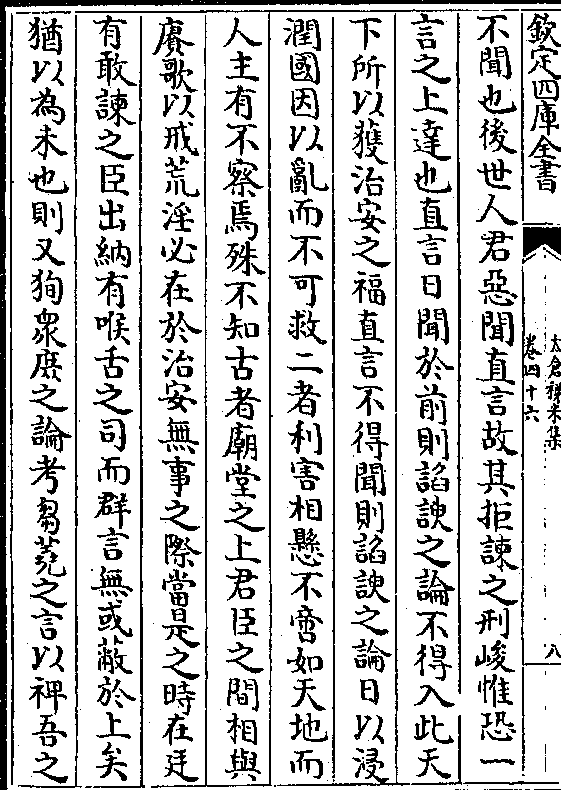 欽定四庫全書
太倉稊米集
卷四十六
八
不聞也後世人君惡聞直言故其拒諫之刑峻惟恐一
言之上達也直言日聞於前則謟諛之論不得入此天
下所以獲治安之福直言不得聞則謟諛之論日以浸
潤國因以亂而不可救二者利害相懸不啻如天地而
人主有不察焉殊不知古者廟堂之上君臣之間相與
賡歌以戒荒淫必在於治安無事之際當是之時在廷
有敢諫之臣出納有喉舌之司而群言無或蔽於上矣
猶以為未也則又狥衆庶之論考芻蕘之言以裨吾之